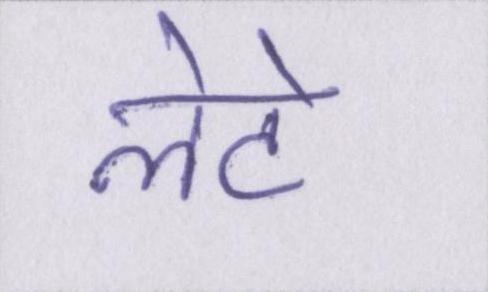 लेटे